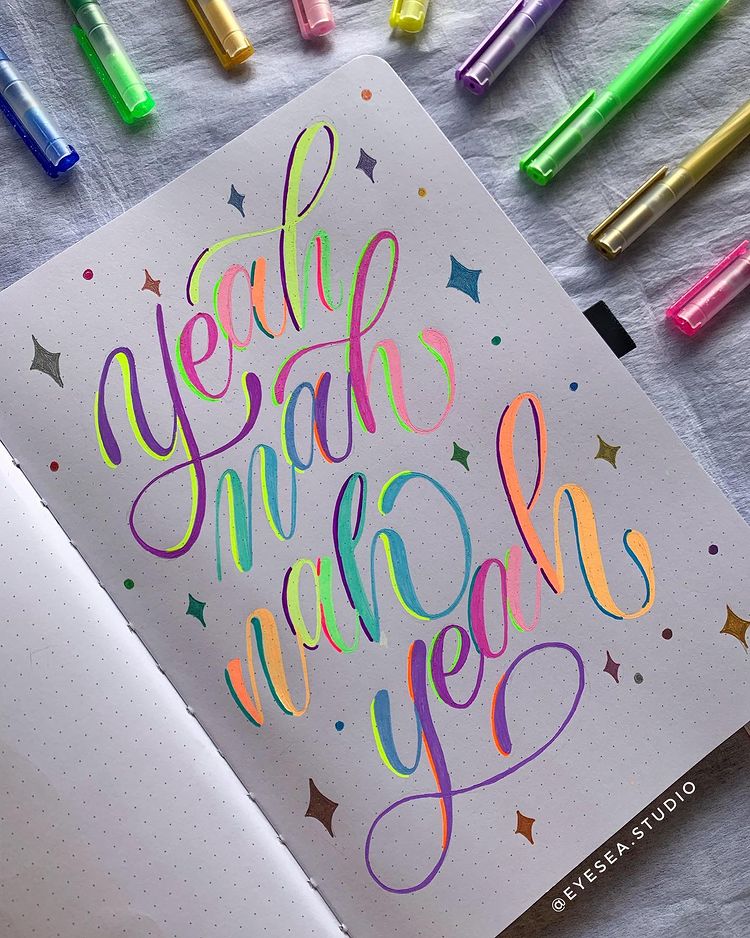 yeah
nah
nah
yeah
@EYESEA.STUDIO